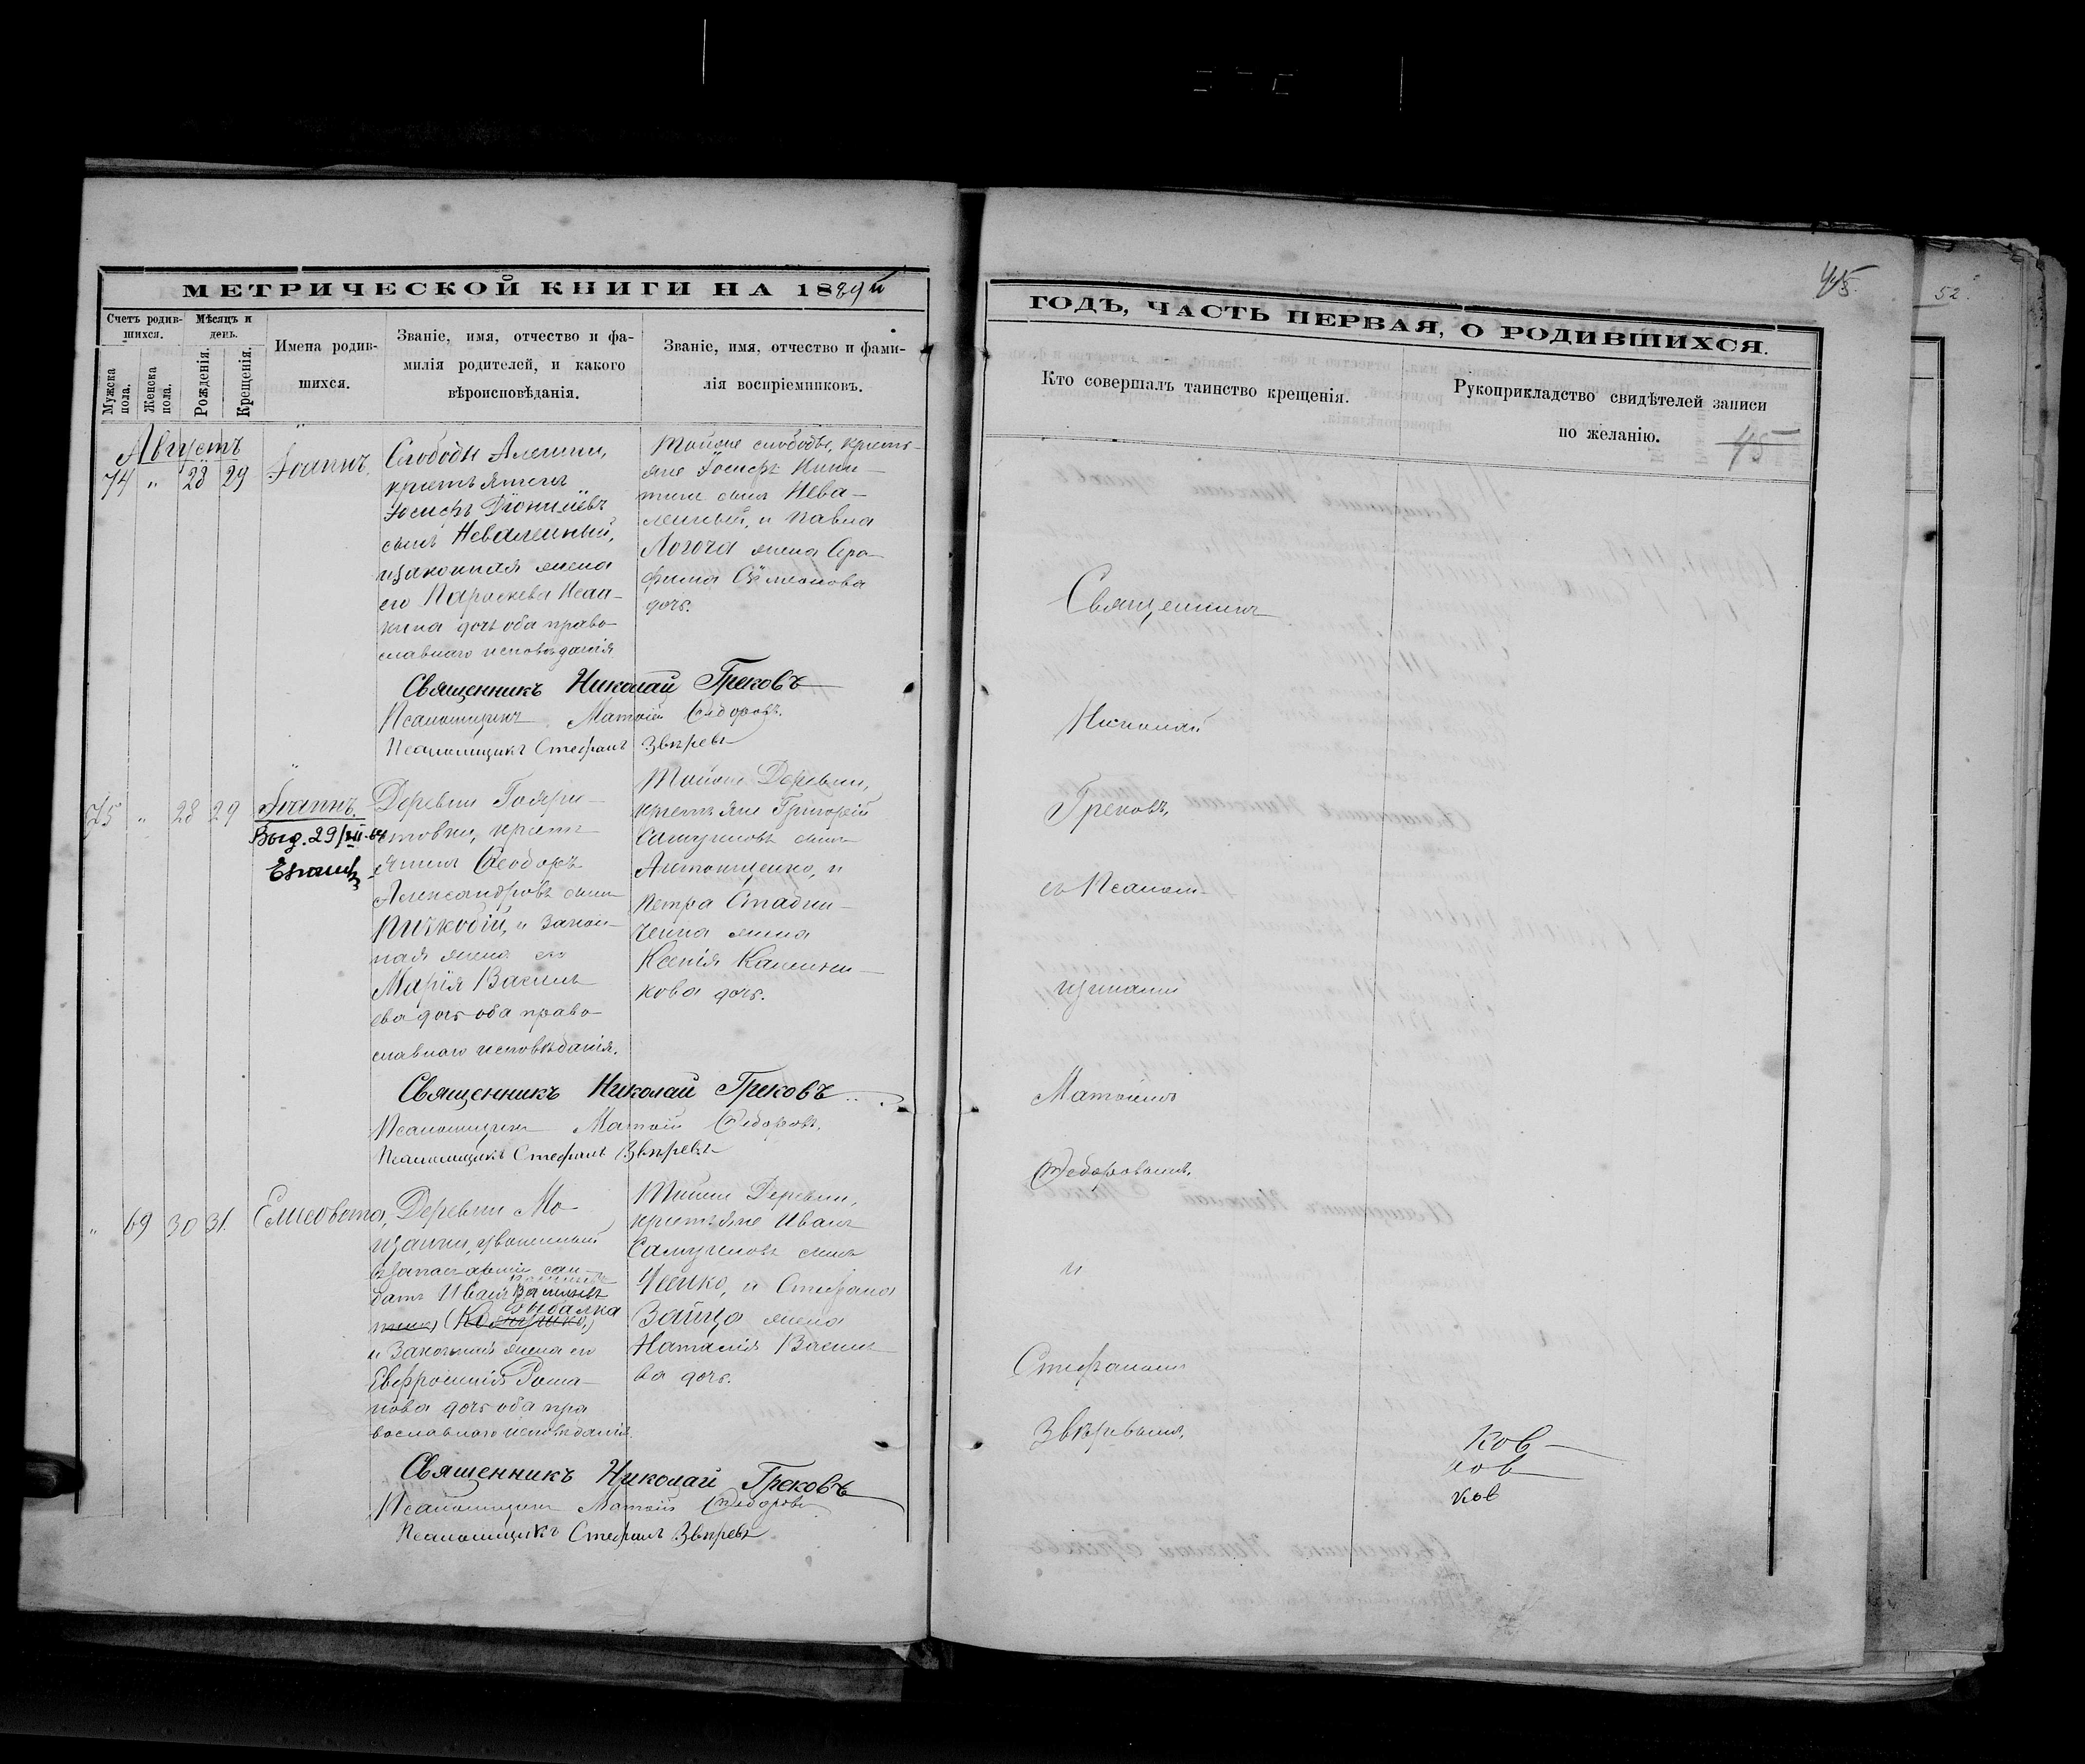 МЕТРИЧЕСКОЙ КНИГИ НА 1889й
Счетъ родив-
шихся.
Мѣсяцъ и
день.
Мужска
пола.
Женска
пола.
Рожденія.
Крещенія.
Имена родив-
шихся.
Званіе, имя, отчество и фа-
милія родителей, и какого
вѣроисповѣданія.
Званіе, имя, отчество и фами-
лія воспріемниковъ.
Августъ
74 " 28 29 Іоаннъ.
Слободы Алешки,
крестьянинъ
Іосифъ Діонисіевъ
сынъ Неваленный,
и законная жена
его Параскева
дочь оба право-
славнаго исповѣданія
Тойже слободы, кресть-
яне Іосифъ Ники-
тинъ сынъ Нева-
ленный, и Павла
Логоча жена Сера-
фима Сѵмеонова
дочь.
Священникъ Николай Грековъ
Псаломщикъ Матѳій Ѳедоровъ.
Псаломщикъ Стефанъ Звѣревъ
75 " 28 29 Іоаннъ.
Выд. 29/
Деревни
крест-
янинъ Ѳеодоръ
Александровъ сынъ
и закон-
ная жена его
Марія Василь-
ева дочь оба право-
славнаго исповѣданія.
Тойже Деревни,
крестьяне Григорій
Самуиловъ сынъ
Антонценко, и
Петра Стадни-
ченка жена
Ксенія Калини-
кова дочь.
Священникъ Николай Грековъ
Псаломщикъ Матѳій Ѳедоровъ.
Псаломщикъ Стефанъ Звѣревъ
" 69 30 31. Елисавета,
Деревни Мо-
щанки, уволенный
въ запас арміи сол-
датъ Иванъ
Рыбалка
и Законная жена его
Евфросинія Рома-
нова дочь оба пра
вославнаго исповѣданія.
Тойже Деревни,
крестьяне Иванъ
Самуиловъ сынъ
и Стефана
Зайца жена
Наталія Василь
ва дочь.
Священникъ Николай Грековъ
Псаломщикъ Матѳій Ѳедоровъ
Псаломщикъ Стефанъ Звѣревъ
45
52.
ГОДЪ, ЧАСТЬ ПЕРВАЯ, О РОДИВШИХСЯ.
Кто совершалъ таинство крещенія.
Рукоприкладство свидѣтелей записи
по желанію.
45
Священникъ
Николай
Грековъ,
съ Псалом-
щиками
Матѳіемъ
Ѳедоровымъ,
и
Стефаномъ
Звѣревымъ.
ков
ков
ков